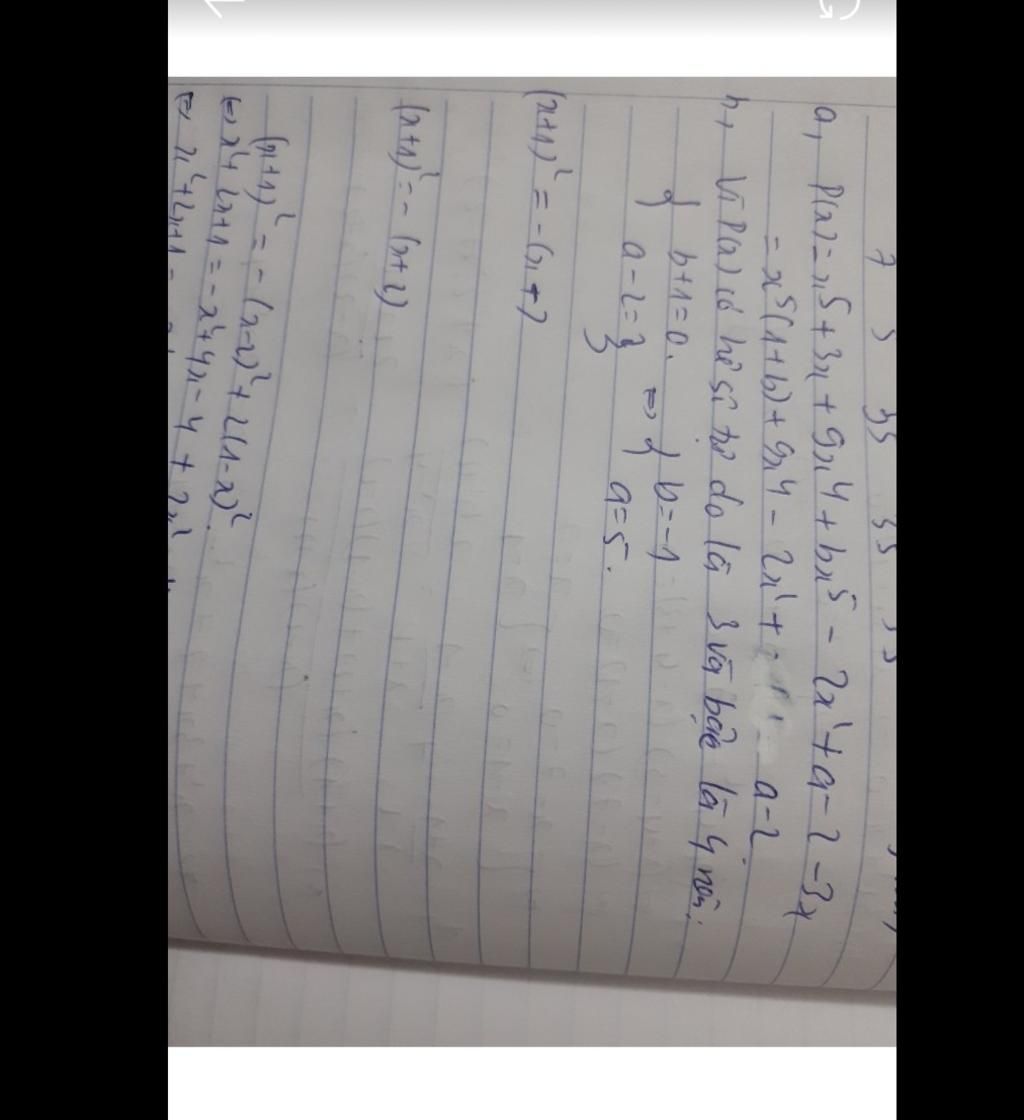 7 5 35 35
a, P(x) = x⁵ + 3x + 9x⁴ + bx⁵ - 2x⁴ + a - 2 - 3x
= x⁵(1+b) + 9x⁴ - 2x⁴ + a-2
b, Vì P(x) có hệ số tự do là 3 và bậc là 4 nên:
{ b+1=0. ⇔ { b=-1
a-2=3 a=5.
(x+1)² = -(x+2
(x+1)² = - (x+2)
(x+1)² = - (x-2)² + 2(1-x)²
⇔ x²+ 2x+1 = -x²+4x-4 +
⇔ x²+2x+1 =